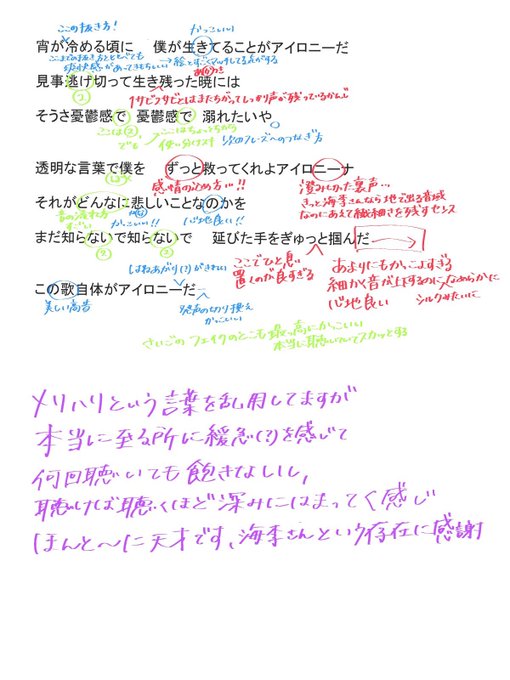 ここの抜き方!
かっこいい
宵が冷める頃に 僕が生きてることがアイロニーだ
見事逃げ切って生き残った暁には
1サビラサビとはまたちがってしっかり声が残っているかんじ
そうさ憂鬱感で 憂鬱感で 溺れたいや
ここは
でも
ここはちょっとちがう
使い分けすき
次のフレーズへのつなぎ方
透明な言葉で僕を ずっと救ってくれよアイロニーナ
感情の込め方…!!
澄みきった裏声…
きっと海李さんなら地で出る音域
なのにあえて繊細さを残すセンス
それがどんなに悲しいことなのかを
音の流れ方
すごい
かっこいい!!
心地良い!!
まだ知らないで知らないで 延びた手をぎゅっと掴んだ
はねあがり(?)がきれい
ここでひと息
置くのが良すぎる
あまりにもかっこよすぎる
細かく音が上下するのになめらかで
心地良い
シルクみたいに
この歌自体がアイロニーだ
美しい高音
発声の切り換え
かっこいい
さいごのフェイクのとこも最っ高にかっこいい
本当に聴いててスカッとする
メリハリという言葉を乱用してますが
本当に至る所に緩急(?)を感じて
何回聴いても飽きないし、
聴けば聴くほど深みにはまってく感じ
ほんと〜に天才です、海李さんという存在に感謝